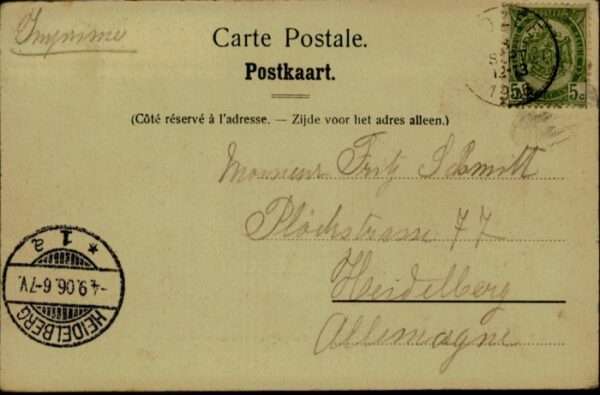 Imprimé
Carte Postale.
Postkaart.
(Côté réservé à l'adresse. — Zijde voor het adres alleen.)
Monsieur Fritz Schmitt
Plöckstrasse 77
Heidelberg
Allemagne
5 5c
HEIDELBERG
-4.9.06.6-7V.
* 1 a